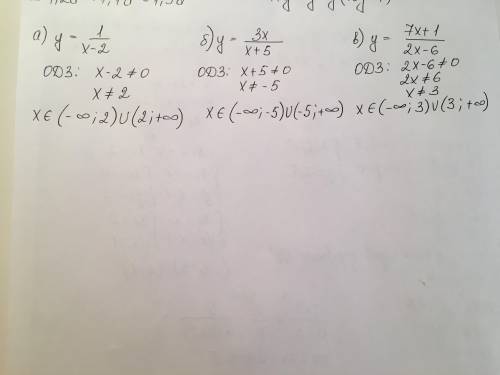 а) y = 1/(x-2)
ОДЗ: x-2≠0
x≠2
x∈(-∞;2)∪(2;+∞)
б) y = 3x/(x+5)
ОДЗ: x+5≠0
x≠-5
x∈(-∞;-5)∪(-5;+∞)
в) y = (7x+1)/(2x-6)
ОДЗ: 2x-6≠0
2x≠6
x≠3
x∈(-∞;3)∪(3;+∞)